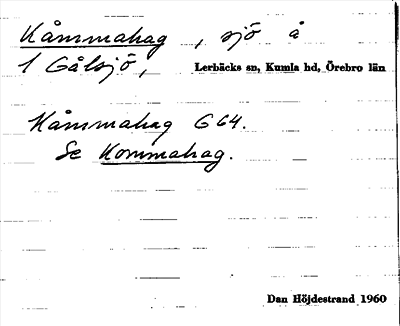 Kåmmahag, sjö å
1 Gålsjö, Lerbäcks sn, Kumla hd, Örebro län
Kåmmahag G 64.
Se Kommahag.
Dan Höjdestrand 1960